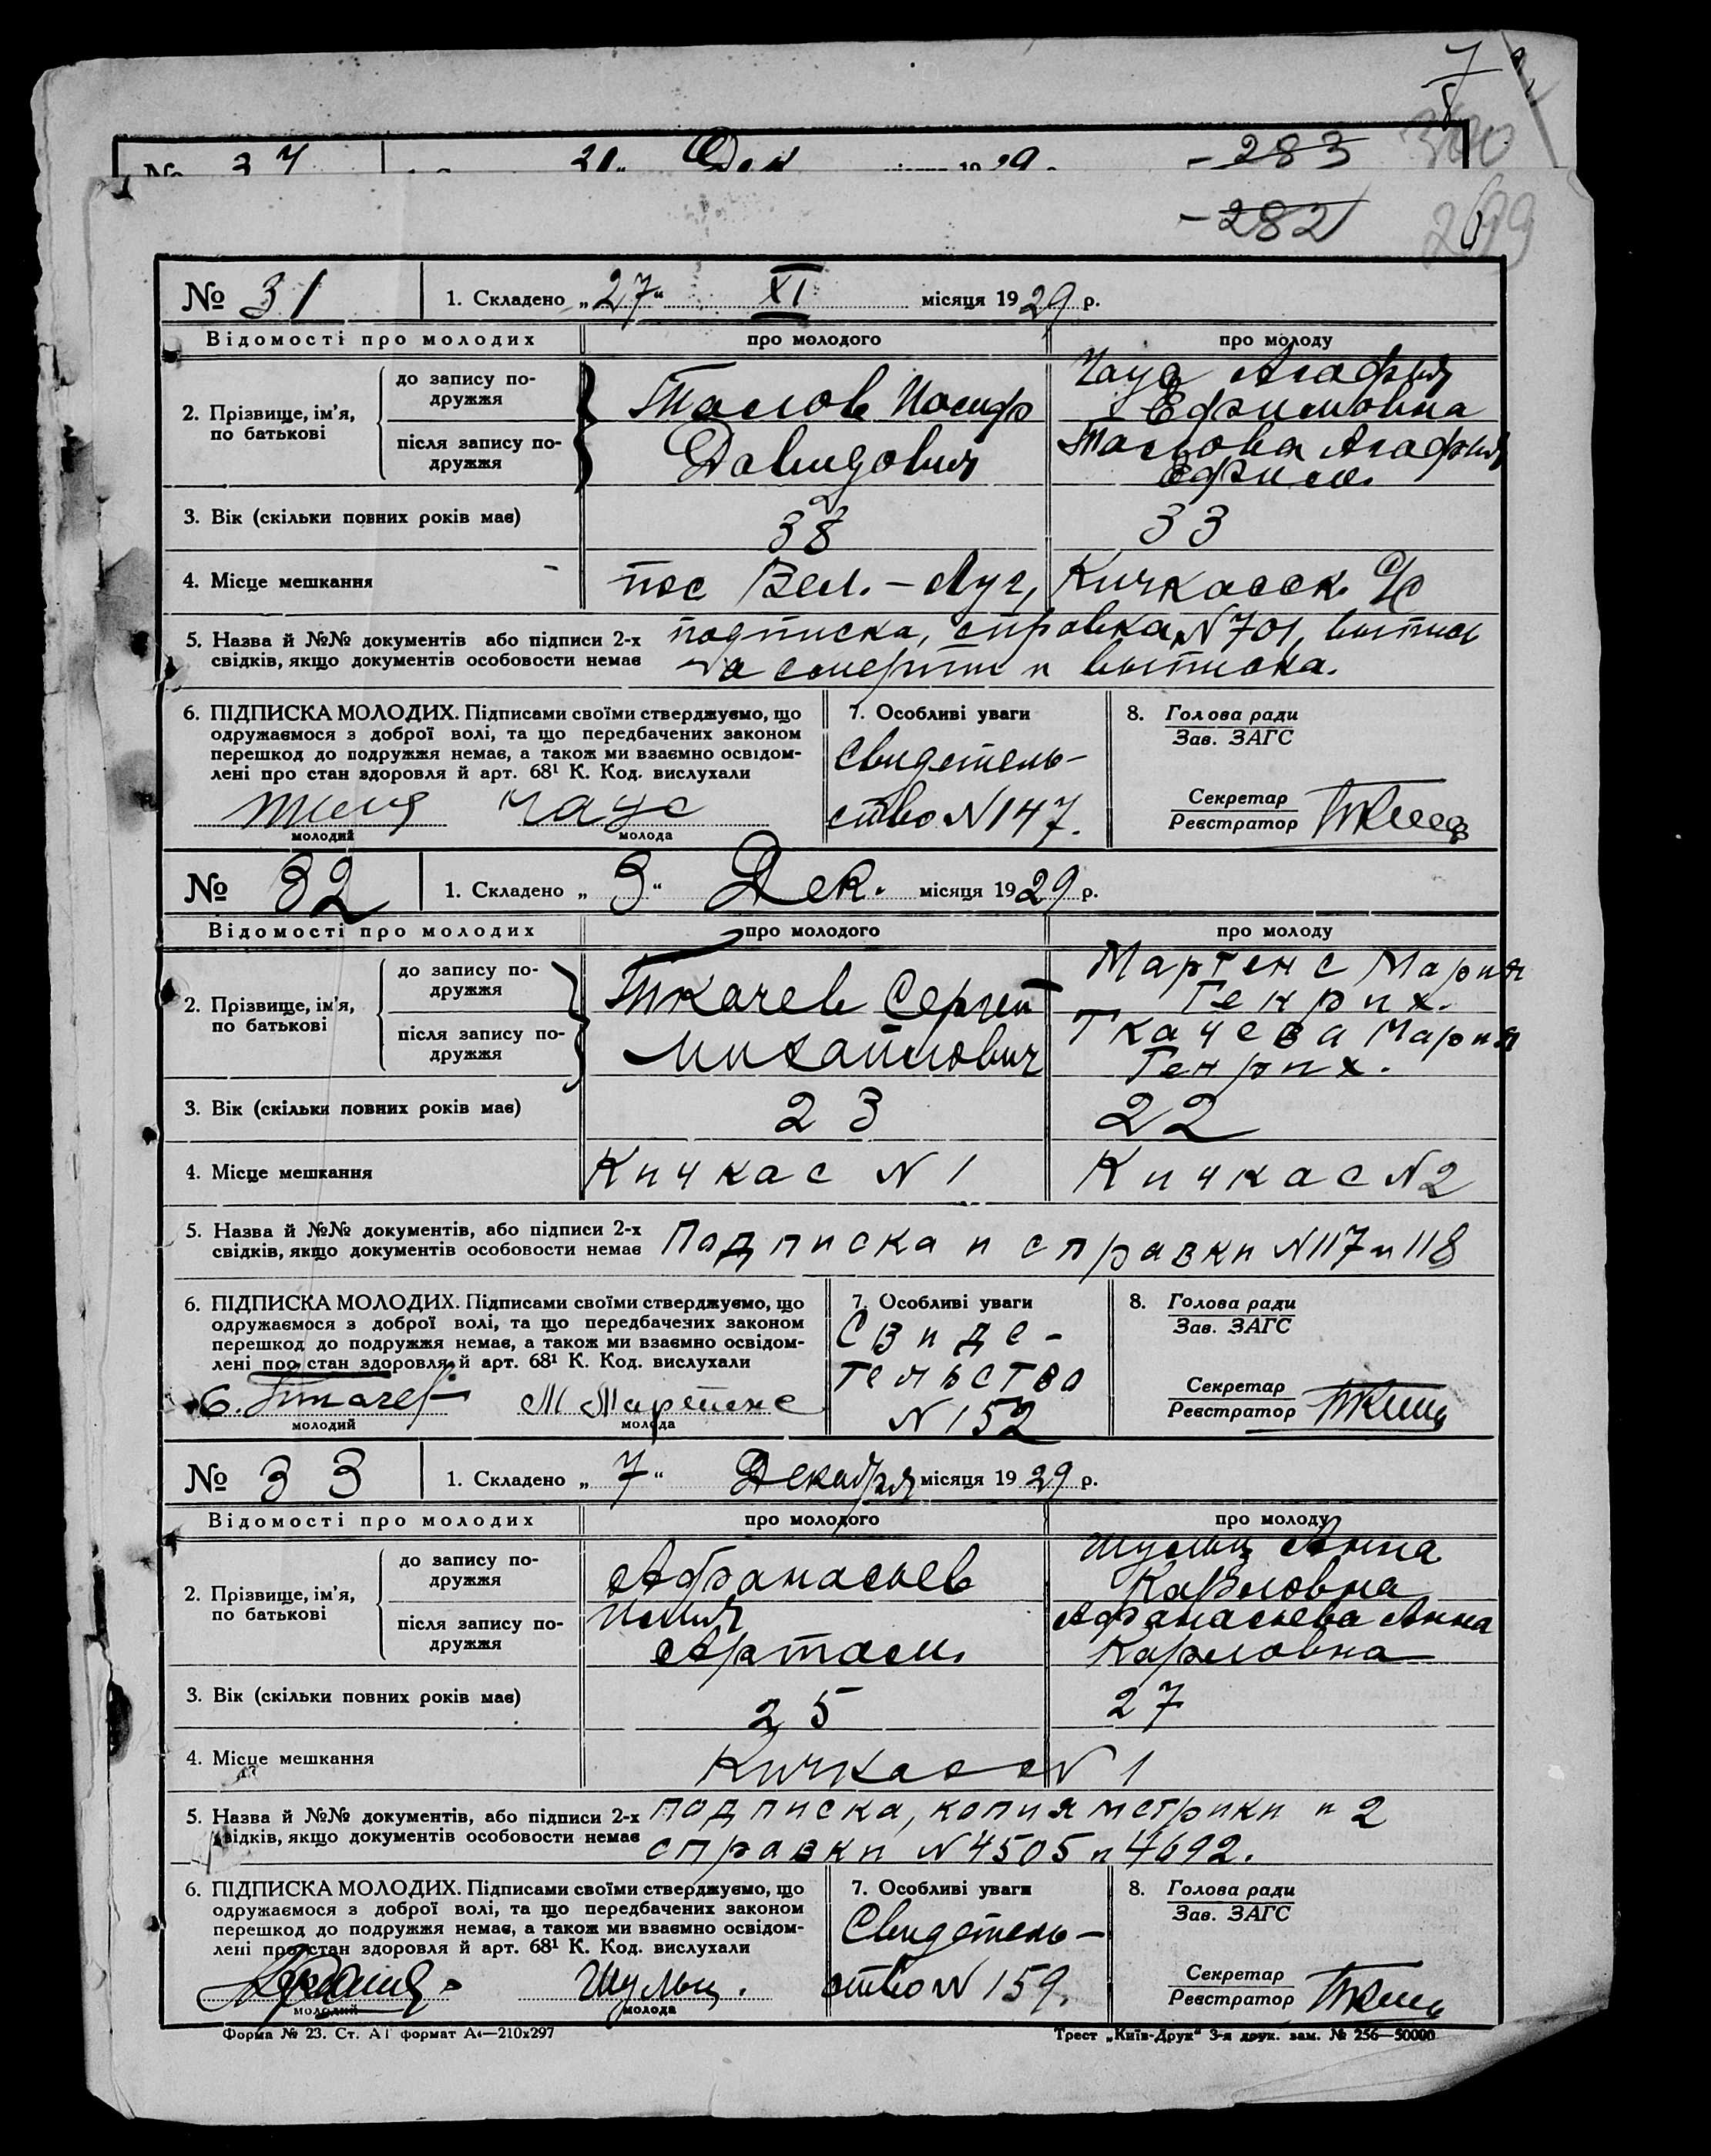 7
300
№ 37 21 Дек 1929 - 283
- 282
299
№ 31 1. Складено „27“ XI місяця 1929 р.
Відомості про молодих про молодого про молоду
2. Прізвище, ім'я, по батькові
до запису подружжя
після запису подружжя
Иосиф
Давидович
Чаус Агафия
Ефимовна
Агафия
Ефим.
3. Вік (скільки повних років має) 38 33
4. Місце мешкання пос Вел.-Луг, Кичкасск. с/с
5. Назва й №№ документів або підписи 2-х подписка, справка N 701, выпись
свідків, якщо документів особовости немає о смерти и выписка.
6. ПІДПИСКА МОЛОДИХ. Підписами своїми стверджуємо, що
одружаємося з доброї волі, та що передбачених законом
перешкод до подружжя немає, а також ми взаємно освідом-
лені про стан здоровля й арт. 68¹ К. Код. вислухали
Чаус
молодий молода
7. Особливі уваги
Свидетель-
ство N 147.
8. Голова ради
Зав. ЗАГС
Секретар
Реєстратор
№ 32 1. Складено „3“ Дек. місяця 1929 р.
Відомості про молодих про молодого про молоду
2. Прізвище, ім'я,
по батькові
до запису по-
дружжя
після запису по-
дружжя
Ткачев Сергей
Михайлович
Мартенс Мария
Генрих.
Ткачева Мария
Генрих.
3. Вік (скільки повних років має) 23 22
4. Місце мешкання Кичкас N 1 Кичкас N 2
5. Назва й №№ документів, або підписи 2-х Подписка и справки N 117 и 118
свідків, якщо документів особовости немає
6. ПІДПИСКА МОЛОДИХ. Підписами своїми стверджуємо, що
одружаємося з доброї волі, та що передбачених законом
перешкод до подружжя немає, а також ми взаємно освідом-
лені про стан здоровля й арт. 68¹ К. Код. вислухали
С. Ткачев М Мартенс
молодий молода
7. Особливі уваги
Свиде-
тельство
N 152
8. Голова ради
Зав. ЗАГС
Секретар
Реєстратор
№ 33 1. Складено „7“ Декабря місяця 1929 р.
Відомості про молодих про молодого про молоду
2. Прізвище, ім'я,
по батькові
до запису по-
дружжя
після запису по-
дружжя
Афанасьев
Илия
Артам.
Шульц Анна
Карловна
Афанасьева Анна
Карловна
3. Вік (скільки повних років має) 25 27
4. Місце мешкання Кичкасс N 1
5. Назва й №№ документів, або підписи 2-х подписка, копия метрики и 2
свідків, якщо документів особовости немає справки N 4505 и 4692.
6. ПІДПИСКА МОЛОДИХ. Підписами своїми стверджуємо, що
одружаємося з доброї волі, та що передбачених законом
перешкод до подружжя немає, а також ми взаємно освідом-
лені про стан здоровля й арт. 68¹ К. Код. вислухали
Шульц.
молодий молода
7. Особливі уваги
Свидетель-
ство N 159.
8. Голова ради
Зав. ЗАГС
Секретар
Реєстратор
Форма № 23. Ст. А1 формат А4—210х297 Трест „Київ-Друк“ 3-я друк. зам. № 256—50000